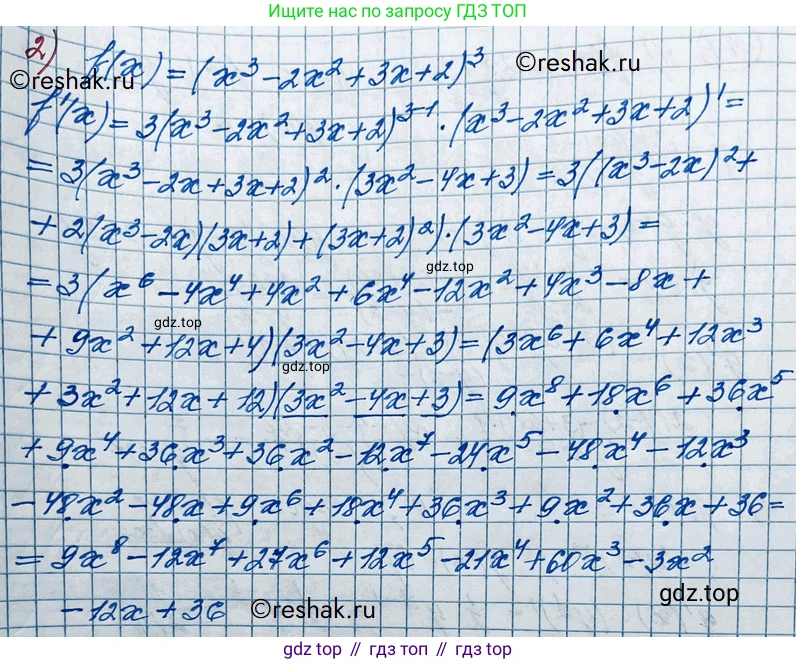 Ищите нас по запросу ГДЗ ТОП
2) f(x) = (x³ - 2x² + 3x + 2)³
©reshak.ru
©reshak.ru
f'(x) = 3(x³ - 2x² + 3x + 2)³⁻¹ · (x³ - 2x² + 3x + 2)' =
= 3(x³ - 2x + 3x + 2)² · (3x² - 4x + 3) = 3((x³ - 2x)² +
+ 2(x³ - 2x)(3x + 2) + (3x + 2)²) · (3x² - 4x + 3) =
gdz.top
= 3(x⁶ - 4x⁴ + 4x² + 6x⁴ - 12x² + 4x³ - 8x +
gdz.top
+ 9x² + 12x + 4)(3x² - 4x + 3) = (3x⁶ + 6x⁴ + 12x³
gdz.top
+ 3x² + 12x + 12)(3x² - 4x + 3) = 9x⁸ + 18x⁶ + 36x⁵
+ 9x⁴ + 36x³ + 36x² - 12x⁷ - 24x⁵ - 48x⁴ - 12x³
- 48x² - 48x + 9x⁶ + 18x⁴ + 36x³ + 9x² + 36x + 36 =
= 9x⁸ - 12x⁷ + 27x⁶ + 12x⁵ - 21x⁴ + 60x³ - 3x²
gdz.top
- 12x + 36
©reshak.ru
gdz.top // гдз.топ // gdz top // гдз топ